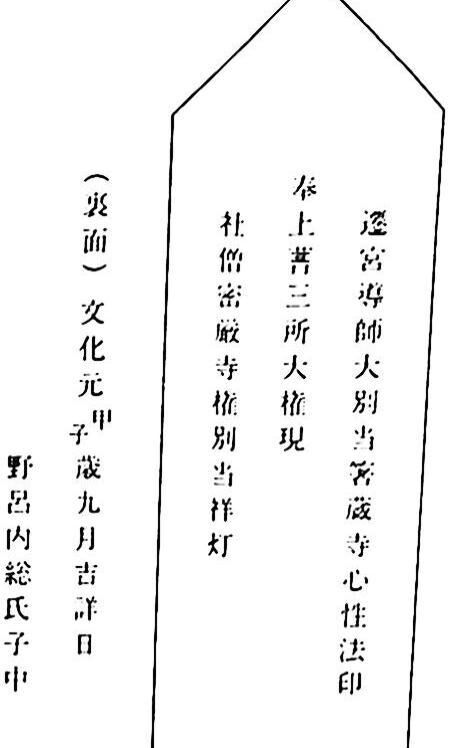 遷宮導師大別当箸蔵寺心性法印
奉上菩三所大権現
社僧密厳寺権別当祥灯
（裏面）文化元甲子歳九月吉詳日
野呂内総氏子中